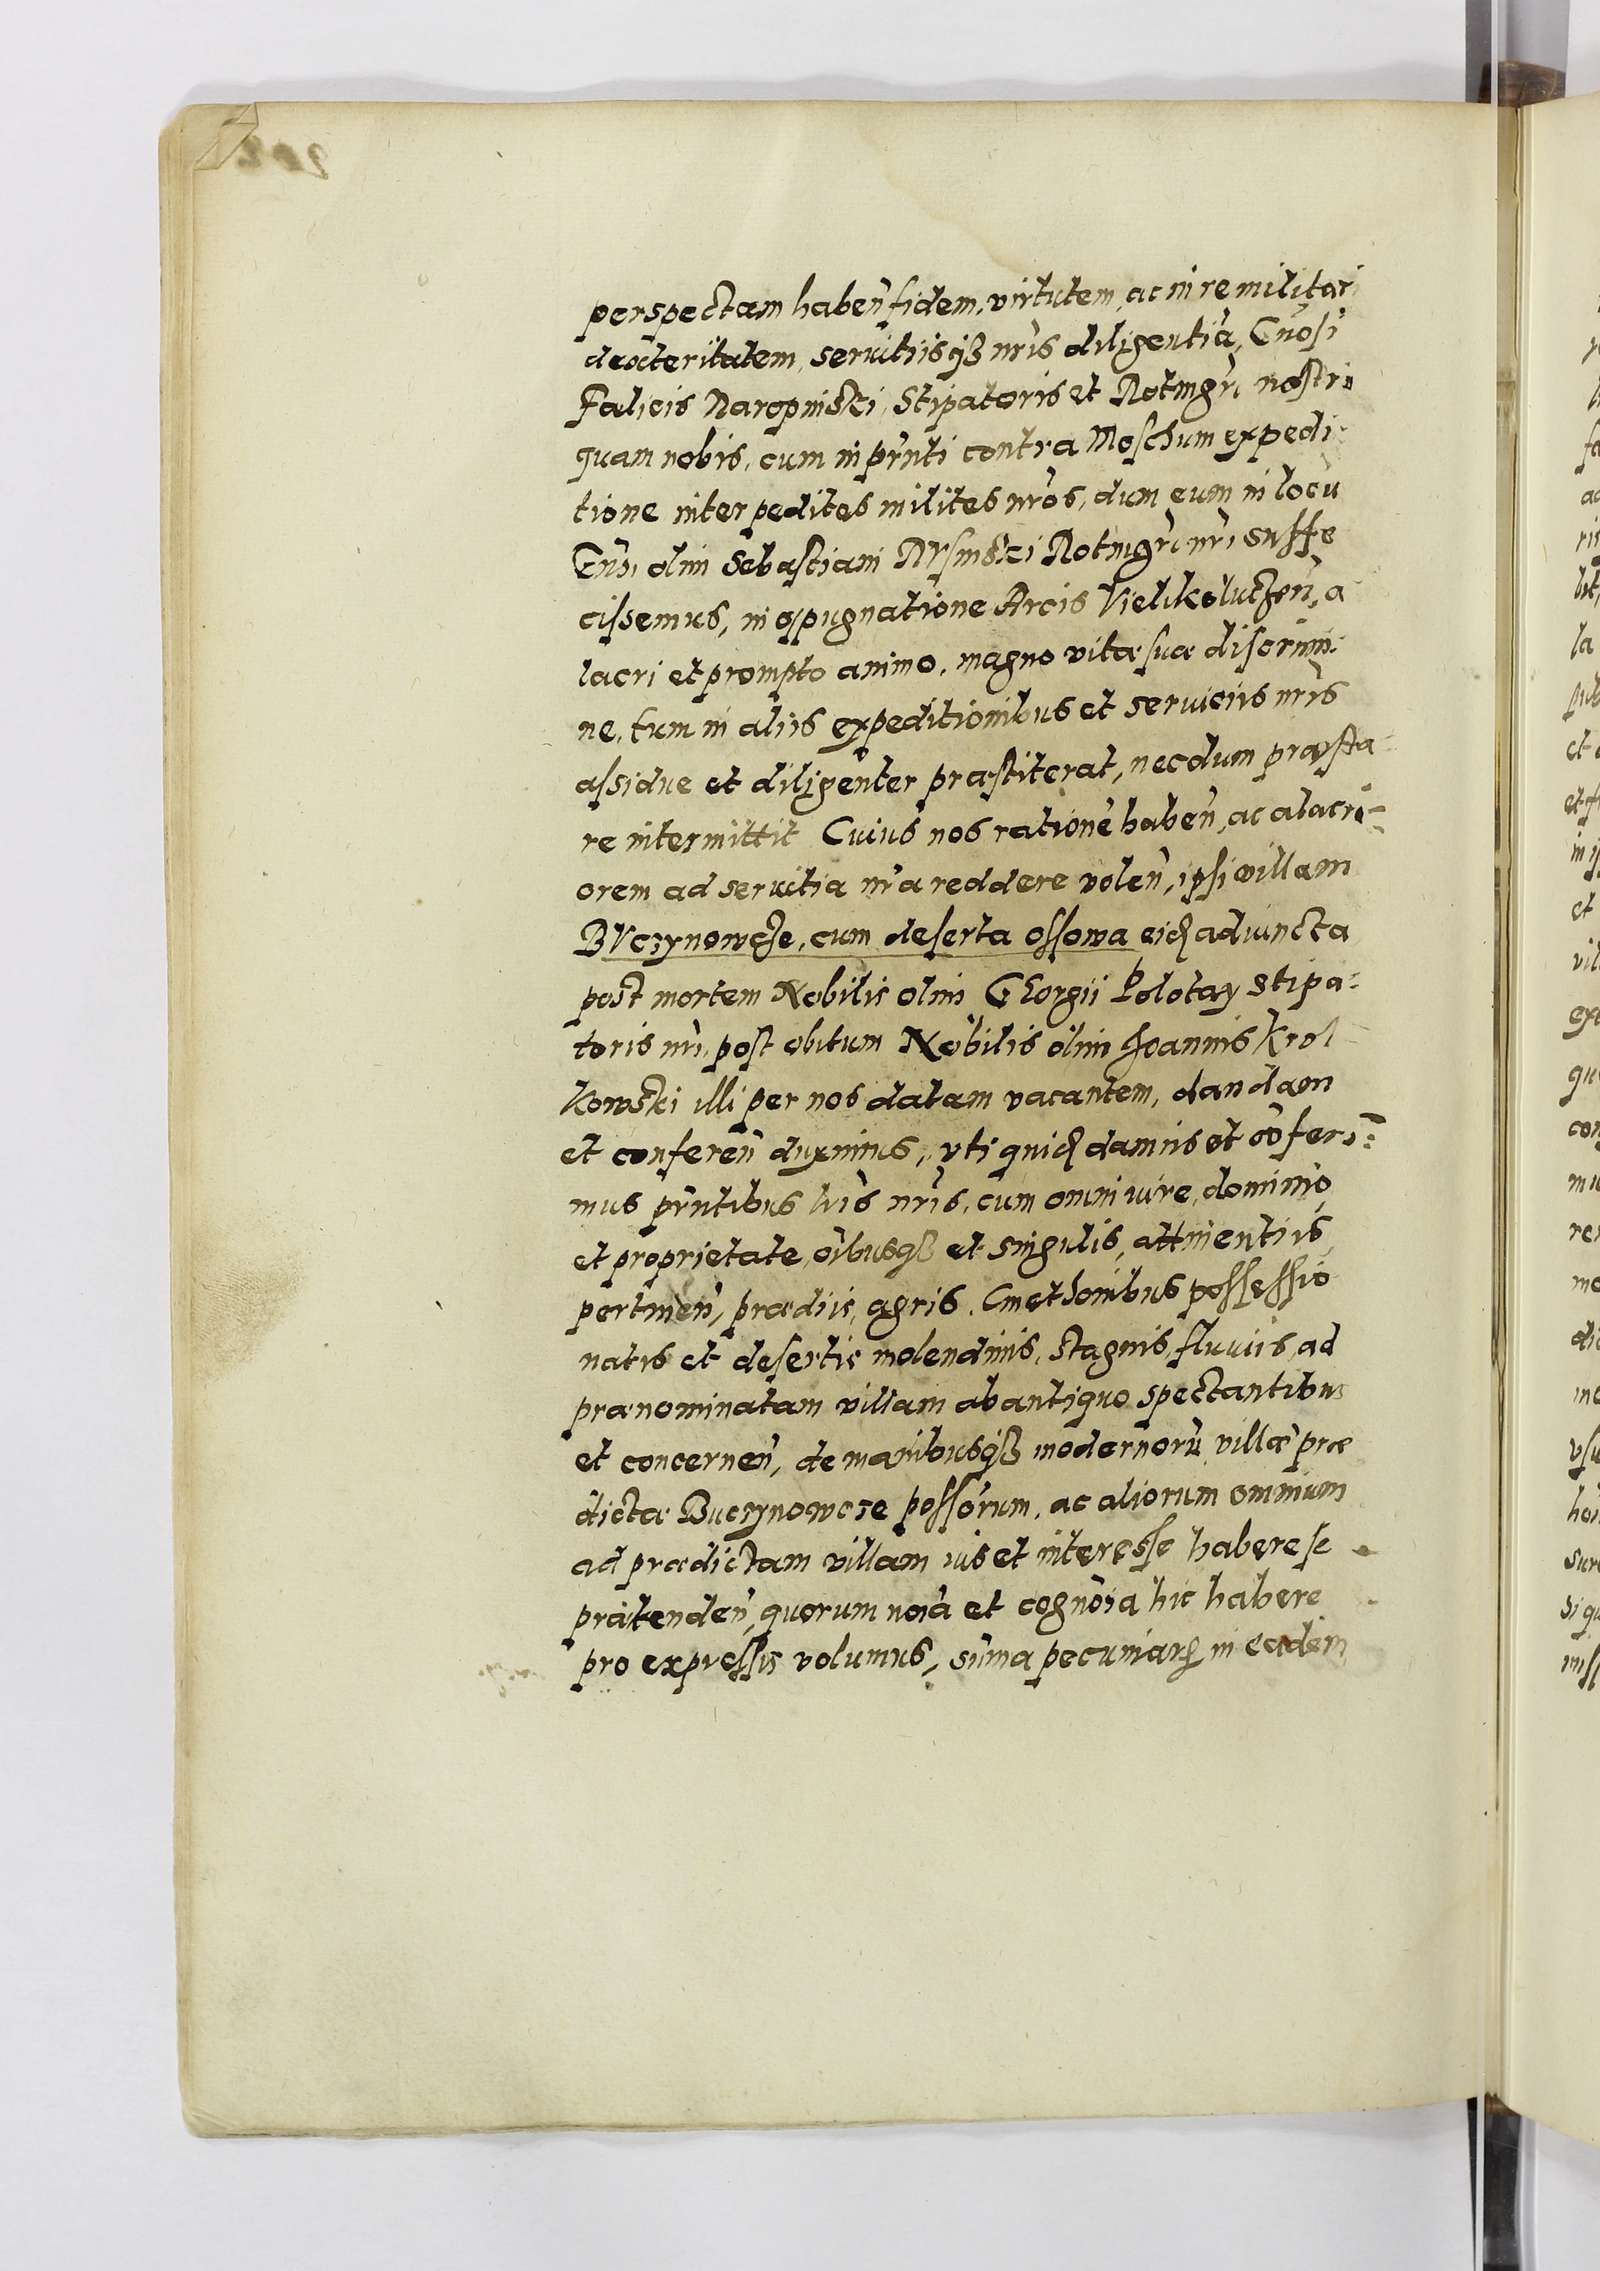 perspectam haben̄ fidem, virtutem, ac in re militari
dexteritatem, seruitiisqȝ nr̄is diligentiā, Gn̄osi
Falicis Naropinski, Stipatoris et Rotmgr̄i nostri
quam nobis, cum in pr̄nti contra Moschum expedi-
tione inter pedites milites nr̄os, dum eum in locū
Gn̄si olim Sebastiani Rusinski Rotmgr̄i nr̄i suffe
cissemus, in oppugnatione Arcis Vielikoluczen̄, a
lacri et prompto animo, magno vitæ suæ discrimi-
ne, tum in aliis expeditionibus et seruiciis nr̄is
assidue et diligenter præstiterat, necdum præsta-
re intermittit Cuius nos rationē haben̄, ac alacri-
orem ad seruitia nr̄a reddere volen̄, ipsi villam
Buczynowcze, cum deserta Ossowa eid adiuncta
post mortem Nobilis olim Georgii Polotay Stipa-
toris nr̄i, post obitum Nobilis olim Joannis Krol
kowski illi per nos datam vacantem, dandam
et conferen̄ duximus, uti quid damus et cōferi-
mus pr̄ntibus lr̄is nr̄is, cum omni iure, dominio,
et proprietate, oībusqȝ et singulis, attinentiis,
pertinen̄, prædiis, agris, Cmethonibus possessio
natis et desertis molendinis, stagnis, fluuiis, ad
prænominatam villam ab antiquo spectantibus
et concernen̄, de manibusqȝ modernorū villæ præ
dictæ Buczynowcze possōrum, ac aliorum omnium
ad prædictam villam ius et interesse habere se
prætenden̄, quorum noīa et cognoīa hic habere
pro expressis volumus, sūma pecuniar in eadem